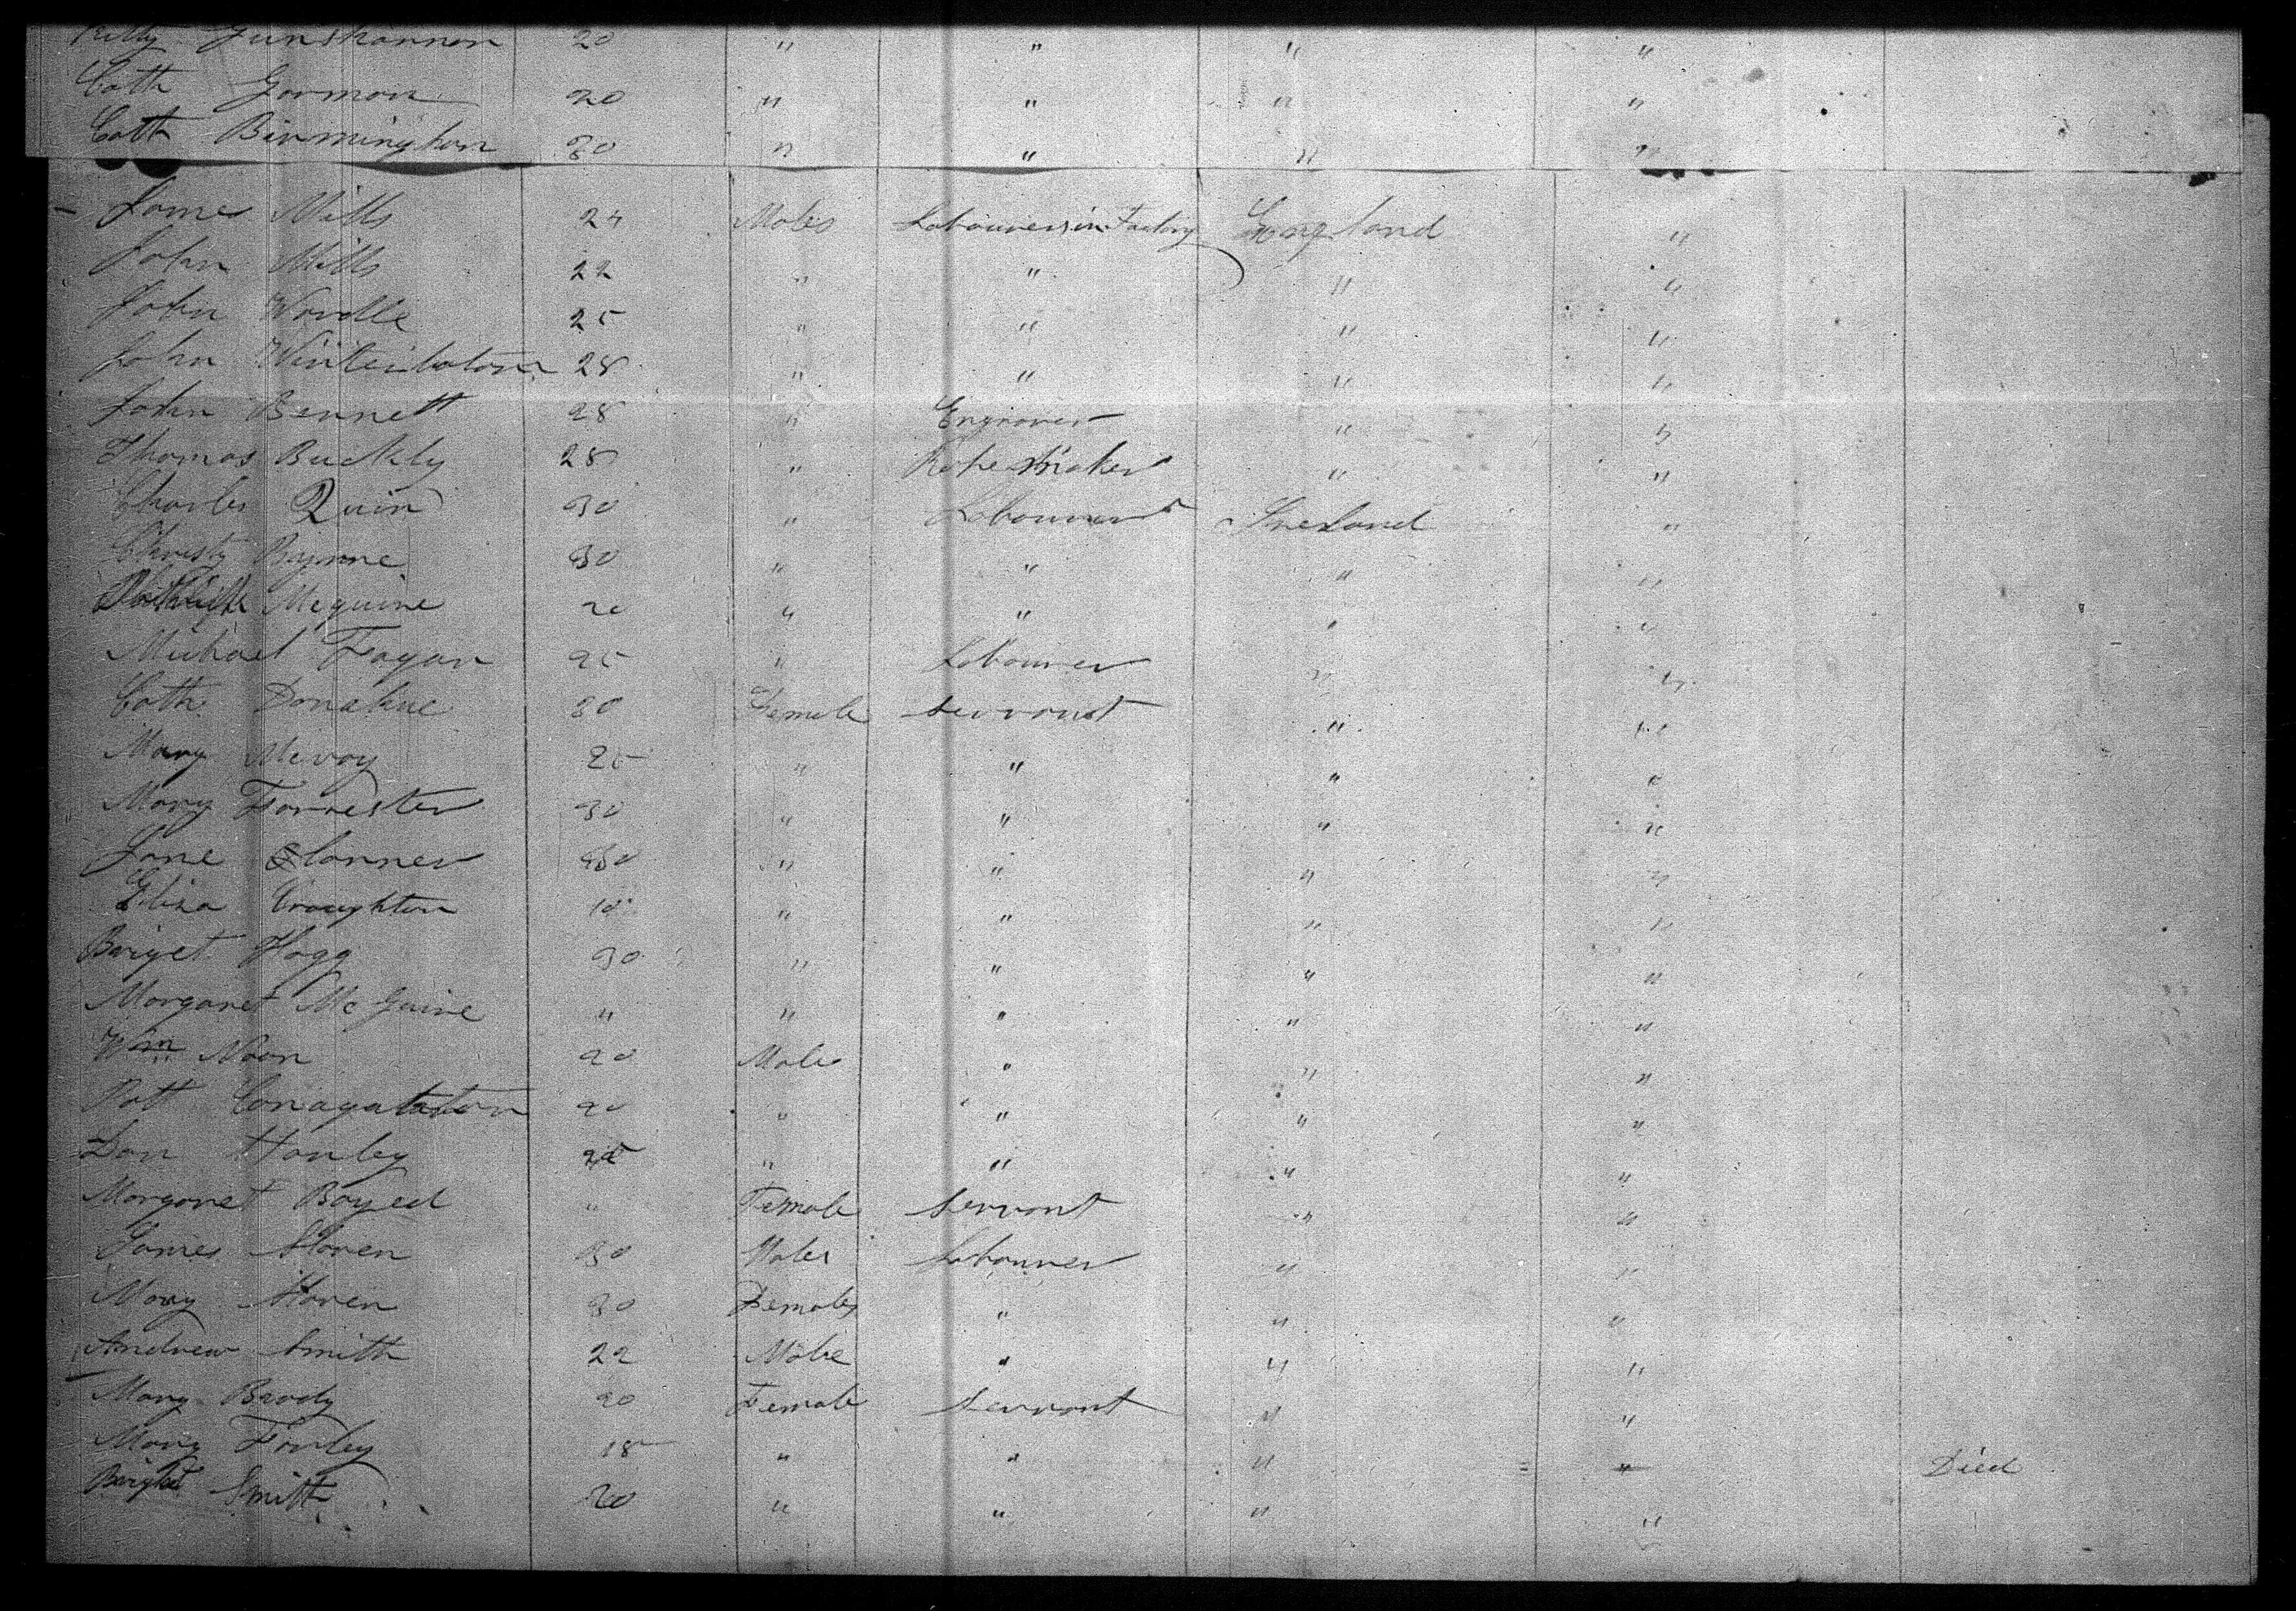 Kitty Gunshannon 20 " " " "
Cath Gormon 20 " " " "
Cath Birmingham 30 " " " "
James Mills 24 Males Labourers in Factory England "
John Mills 22 " " " "
John Wordle 25 " " " "
John Winterbotom 28 " " " "
John Bennett 28 " Engraver " "
Thomas Buckly 28 " Rope Maker " "
Charles Quin 30 " Labourer Ireland "
Christy Byrne 30 " " " "
Patrick Mcguire 20 " " " "
Michael Fagan 25 " Labourer " "
Cath Donahue 30 Female Servant " "
Mary Mcvoy 25 " " " "
Mary Forrester 30 " " " "
Jane 30 " " " "
Eliza Craughton 10 " " " "
Bariget Hogg 30 " " " "
Margaret McGuire " " " " "
Wm Noon 20 Males " " "
Patt 20 " " " "
Dan Hanley 25 " " " "
Margaret Boyed " Female Servant " "
James Slaven 30 Males Labourer " "
Mary Slaven 30 Females " " "
Andrew Smith 22 Male " " "
Mary Brody 20 Female Servant " "
Mary Farley 18 " " " " Died
Smith 20 " " " "